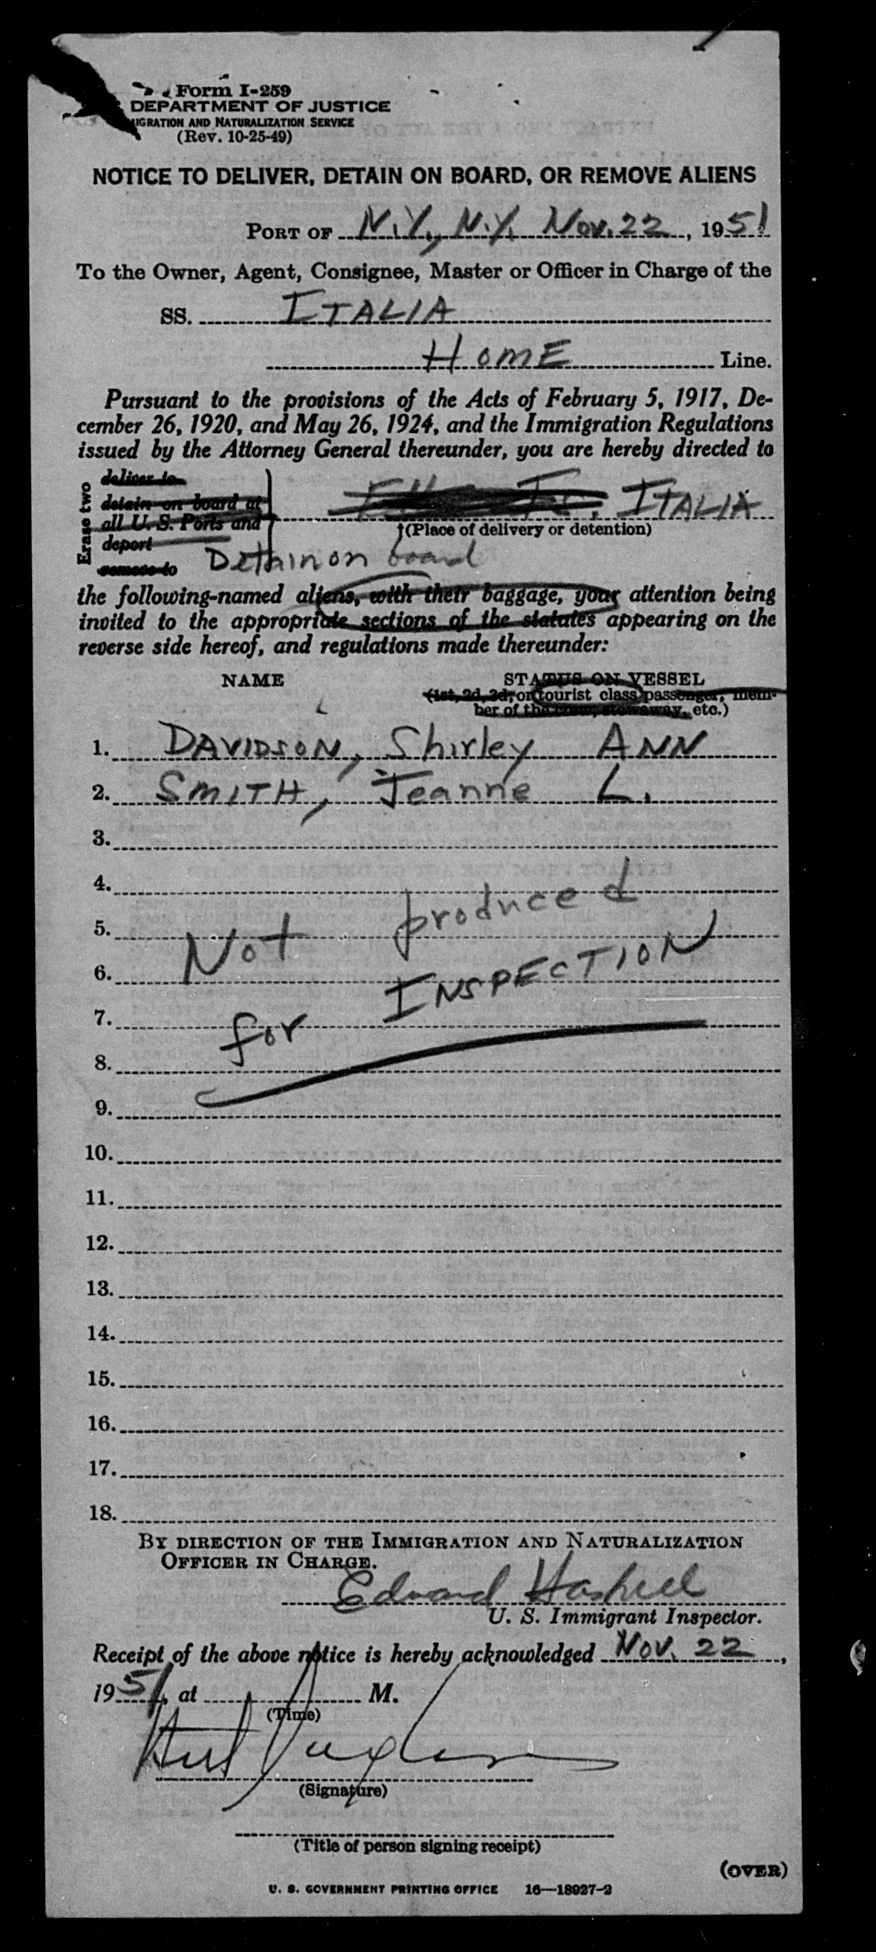 Form I-259
DEPARTMENT OF JUSTICE
IGRATION AND NATURALIZATION SERVICE
(Rev. 10-25-49)
NOTICE TO DELIVER, DETAIN ON BOARD, OR REMOVE ALIENS
PORT OF N.Y., N.Y. Nov. 22, 1951
To the Owner, Agent, Consignee, Master or Officer in Charge of the
SS. ITALIA
HOME Line.
Pursuant to the provisions of the Acts of February 5, 1917, De-
cember 26, 1920, and May 26, 1924, and the Immigration Regulations
issued by the Attorney General thereunder, you are hereby directed to
Erase two
deliver to
detain on board at
all U.S. Ports and
deport
remove to
ITALIA
(Place of delivery or detention)
Detain on board
the following-named aliens, with their baggage, your attention being
invited to the appropriate sections of the statutes appearing on the
reverse side hereof, and regulations made thereunder:
NAME STATUS ON VESSEL
(1st, 2d, 3d, or tourist class passenger, mem-
ber of the crew, stowaway, etc.)
1. DAVIDSON, Shirley ANN
2. SMITH, Jeanne L.
3.
4.
5.
6.
7.
8.
9.
Not produced
for INSPECTION
10.
11.
12.
13.
14.
15.
16.
17.
18.
BY DIRECTION OF THE IMMIGRATION AND NATURALIZATION
OFFICER IN CHARGE.
Edward Haskell
U. S. Immigrant Inspector.
Receipt of the above notice is hereby acknowledged Nov. 22,
1951, at M.
(Time)
(Signature)
(Title of person signing receipt)
(OVER)
U. S. GOVERNMENT PRINTING OFFICE 16—18927-2